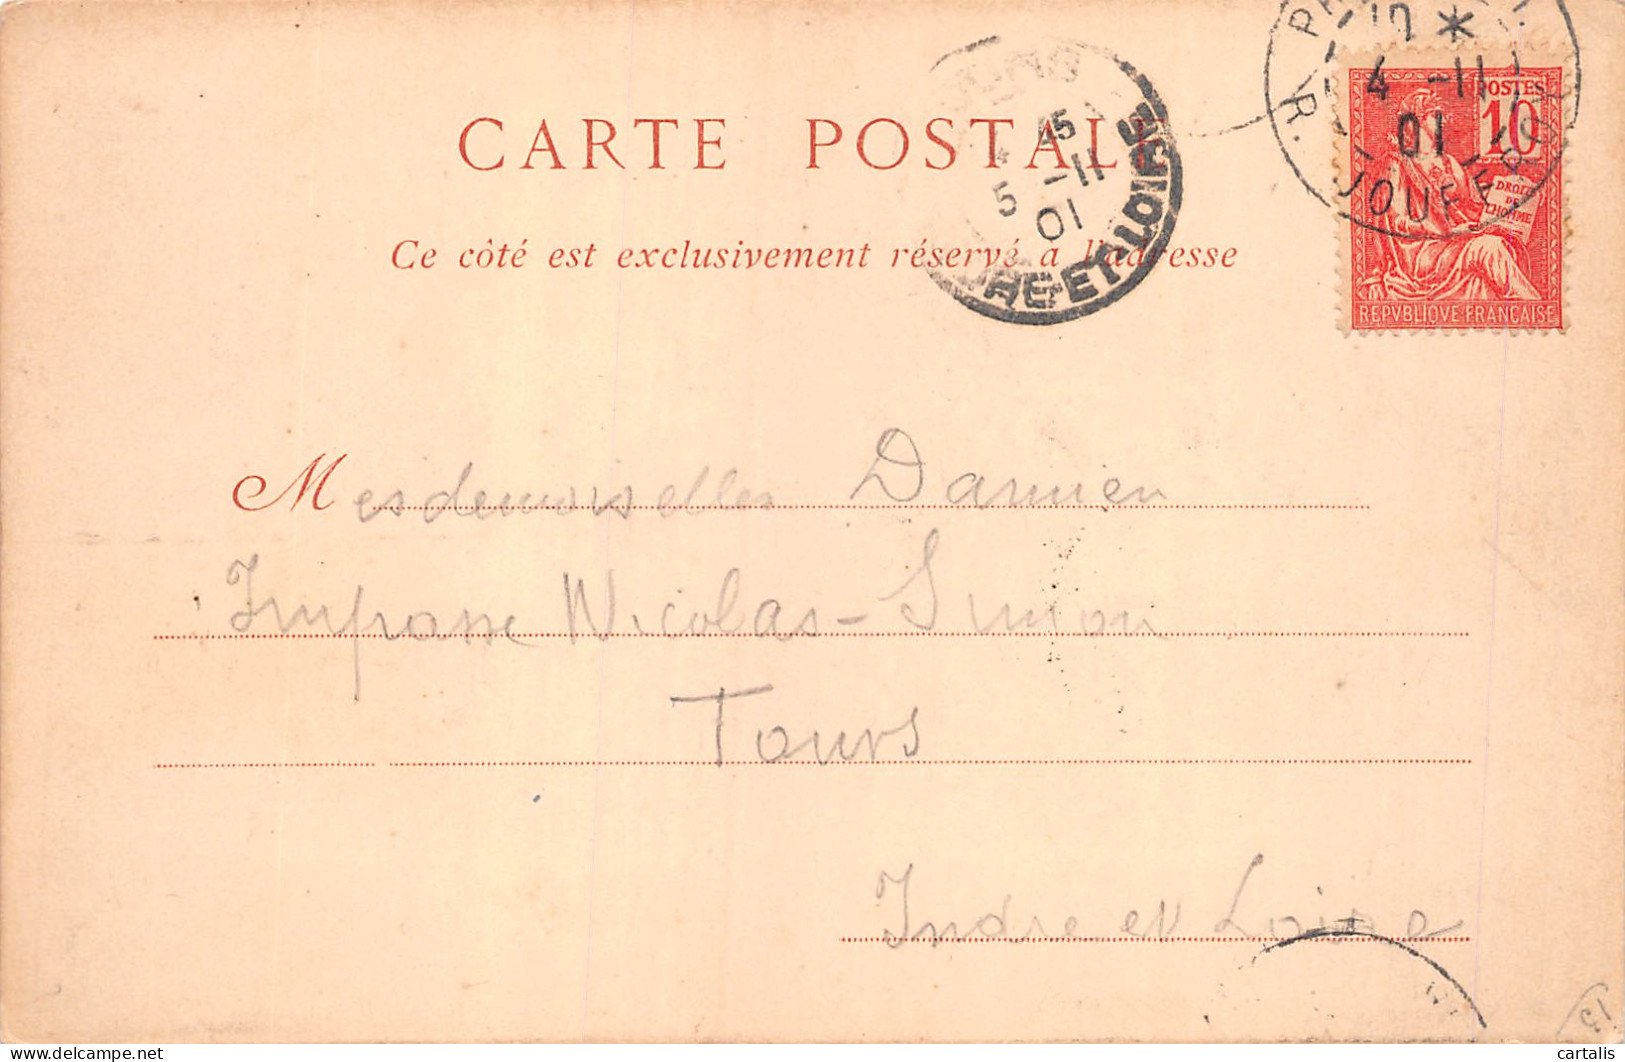 CARTE POSTALE
Ce côté est exclusivement réservé à l'adresse
POSTES
10
DROIT
DE
L'HOMME
REPVBLIQVE FRANÇAISE
4 -11
01
R. JOUFFROY
5 -11
01
INDRE-ET-LOIRE
Mesdemoiselles Damien
Impasse Nicolas-Simon
Tours
Indre et Loire
13
cartalis
www.delcampe.net